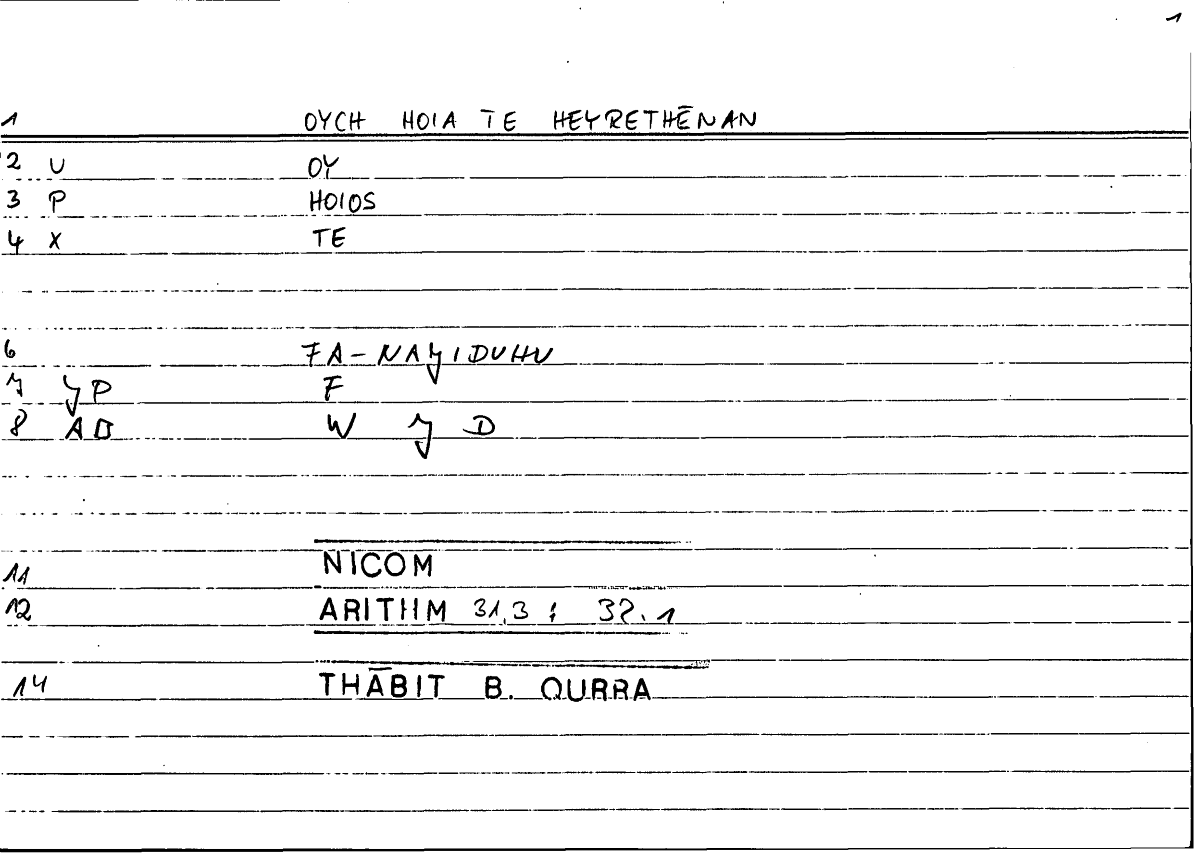 1
1 OYCH HOIA TE HEYRETHĒNAN
2 U OY
3 P HOIOS
4 X TE
6 FA-NAJIDUHU
7 JP F
8 AB W J D
11 NICOM
12 ARITHM 31,3 ; 32.1
14 THĀBIT B. QURRA